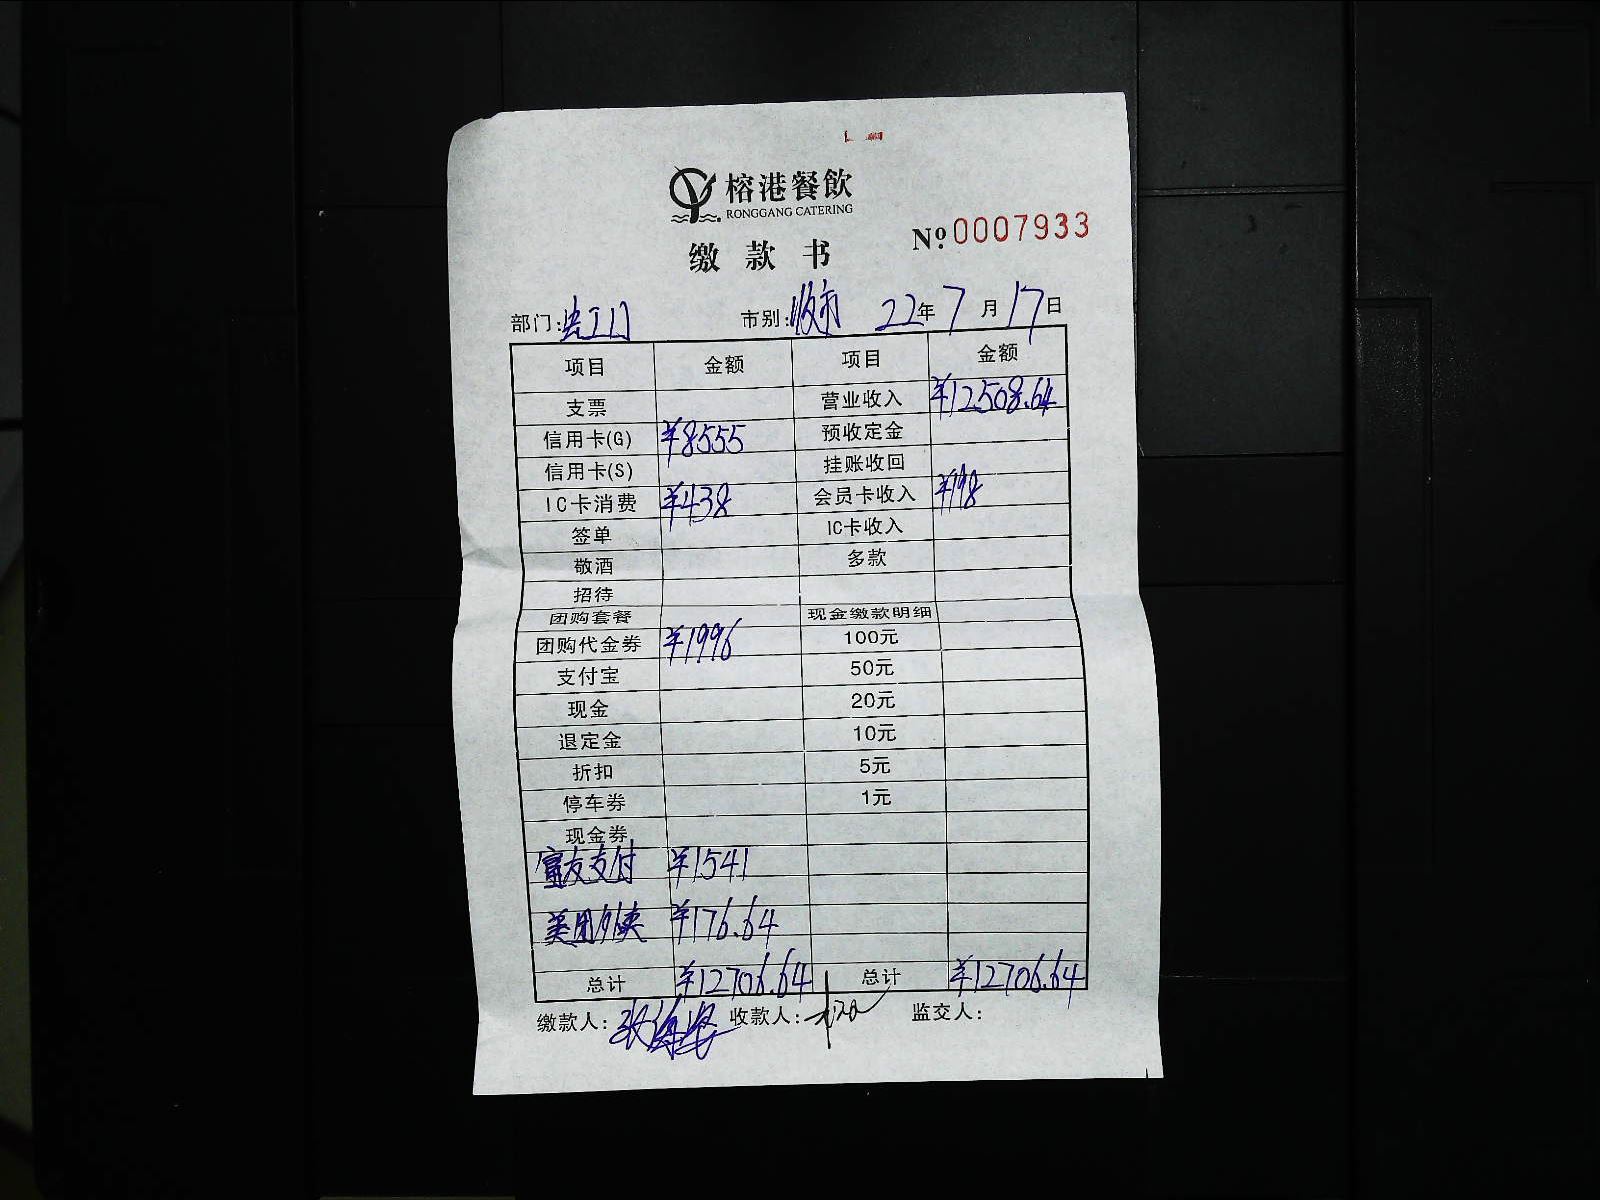 榕港餐飲
RONGGANG CATERING
缴款书 №0007933
部门: 市别:收市 22年7月17日
项目 金额 项目 金额
支票 营业收入 ¥12508.64
信用卡(G) ¥8555 预收定金
信用卡(S) 挂账收回
IC卡消费 ¥438 会员卡收入 ¥198
签单 IC卡收入
敬酒 多款
招待
团购套餐 现金缴款明细
团购代金券 ¥1996 100元
支付宝 50元
现金 20元
退定金 10元
折扣 5元
停车券 1元
现金券
富友支付 ¥1541
美团外卖 ¥176.64
总计 ¥12706.64 总计 ¥12706.64
缴款人: 收款人: 监交人: